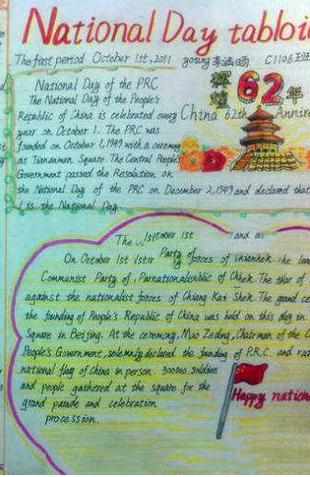 National Day tabloi
The first period October 1st, 2011
C1106班
辉煌 62年
National Day of the PRC
The National Day of the People's
China 62th Annive
Republic of China is celebrated every
year on October 1. The PRC was
founded on October 1, 1949 with a ceremony
at Tiananmen Square. The Central People's
Government passed the Resolution on
the National Day of the PRC on December 2, 1949 and declared that
is the National Day
The 1st and
On October 1st Party forces of the
Communist Party of Chiang Kai Shek. The
against the nationalist forces of Chiang Kai Shek. The grand ce
the founding of People's Republic of China was held on this day in
Square in Beijing. At the ceremony, Mao Zedong, Chairman of the C
People's Government, solemnly declared the founding of P.R.C. and ra
national flag of China in person. 300000 soldiers
and people gathered at the square for the
grand parade and celebration
procession.
Happy nation